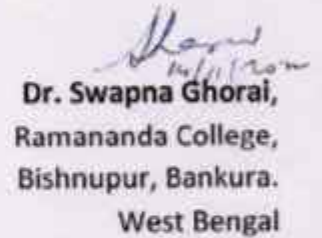 Dr. Swapna Ghorai,
Ramananda College,
Bishnupur, Bankura.
West Bengal